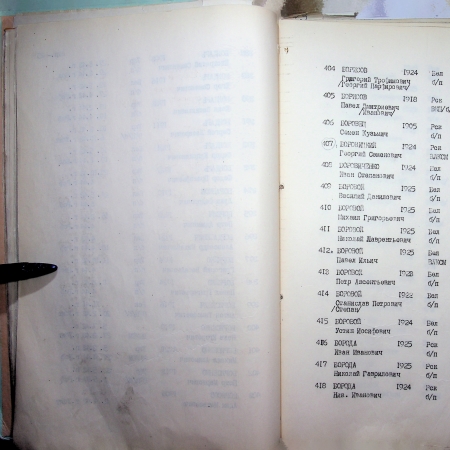 404 БОРИСОВ 1924 Бел
Григорий Трофимович б/п
/Георгий Парфирович/
405 БОРИСОВ 1918 Рск
Павел Дмитриевич
/Иванович/
406 БОРОВЕЦ 1905 Рск
Семен Кузьмич б/п
407 1924 Рск
Георгий Семенович ВЛКСМ
408 БОРОВИЧЕНКО 1924 Бел
Иван Степанович б/п
409 БОРОВОЙ 1925 Бел
Василий Данилович б/п
410 БОРОВОЙ 1925 Бел
Михаил Григорьевич б/п
411 БОРОВОЙ 1925 Бел
Николай Лаврентьевич б/п
412. БОРОВОЙ 1925 Бел
Павел Ильич ВЛКСМ
413 БОРОВОЙ Бел
Петр Авсентьевич б/п
414 БОРОВОЙ 1922 Бел
Станислав Петрович б/п
/Степан/
415 БОРОВОЙ 1924 Бел
Устин Иосифович б/п
416 БОРОДА 1925 Рск
Иван Иванович б/п
417 БОРОДА 1925 Рск
Николай Гаврилович б/п
418 БОРОДА 1924 Рск
Ник. Иванович б/п